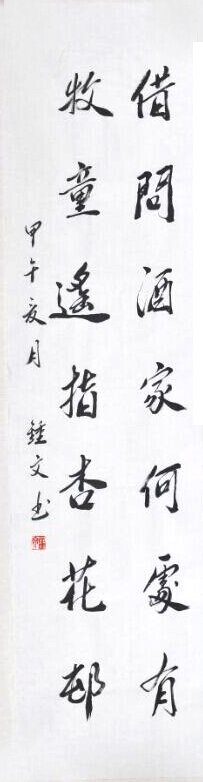 借問酒家何處有
牧童遙指杏花邨
甲午夏月 鍾文书